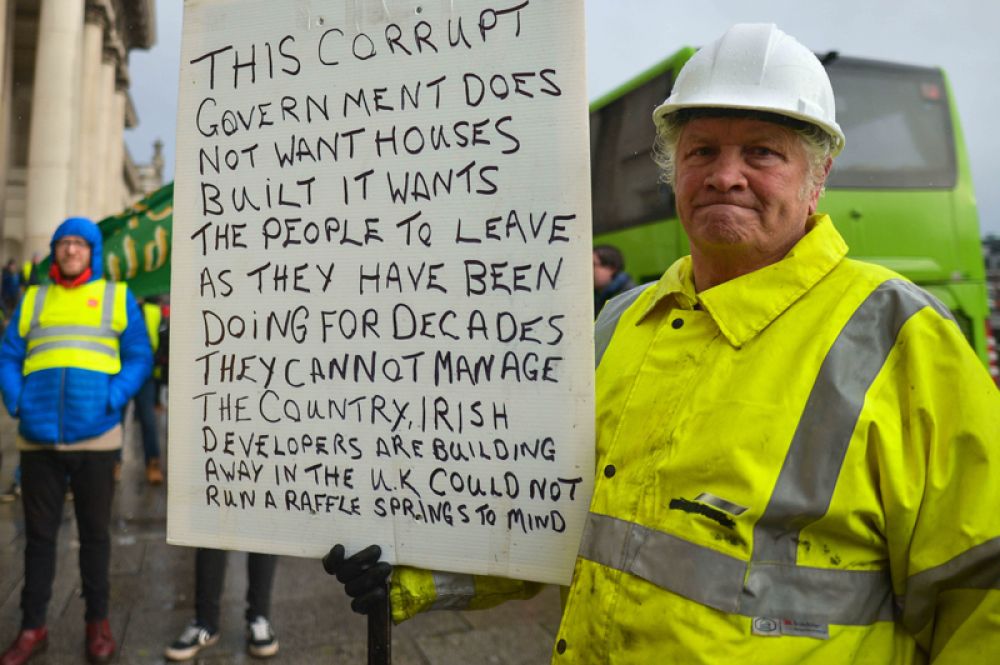 THIS CORRUPT
GOVERNMENT DOES
NOT WANT HOUSES
BUiLT IT WANTS
THE PEOPLE TO LEAVE
AS THEY HAVE BEEN
DOING FOR DECADES
THEY CANNOT MANAGE
THE COUNTRY, IRISH
DEVELOPERS ARE BUILDING
AWAY IN THE U.K COULD NOT
RUN A RAFFLE SPRINGS TO MIND